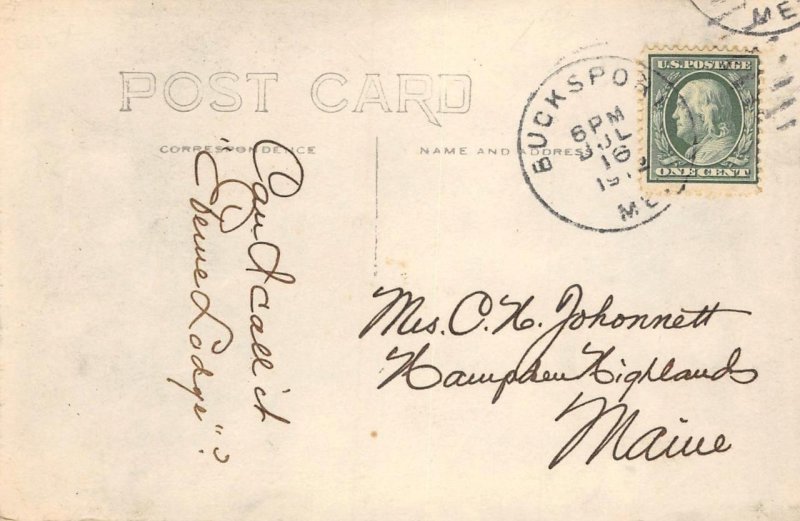 POST CARD
CORRESPONDENCE
NAME AND ADDRESS
BUCKSPO
6 PM
JUL
16
191
ME.
ME
U.S. POSTAGE
ONE CENT
Can't call it
Lodge"?
Mrs. C. H. Johonnett
Hampden Highlands
Maine